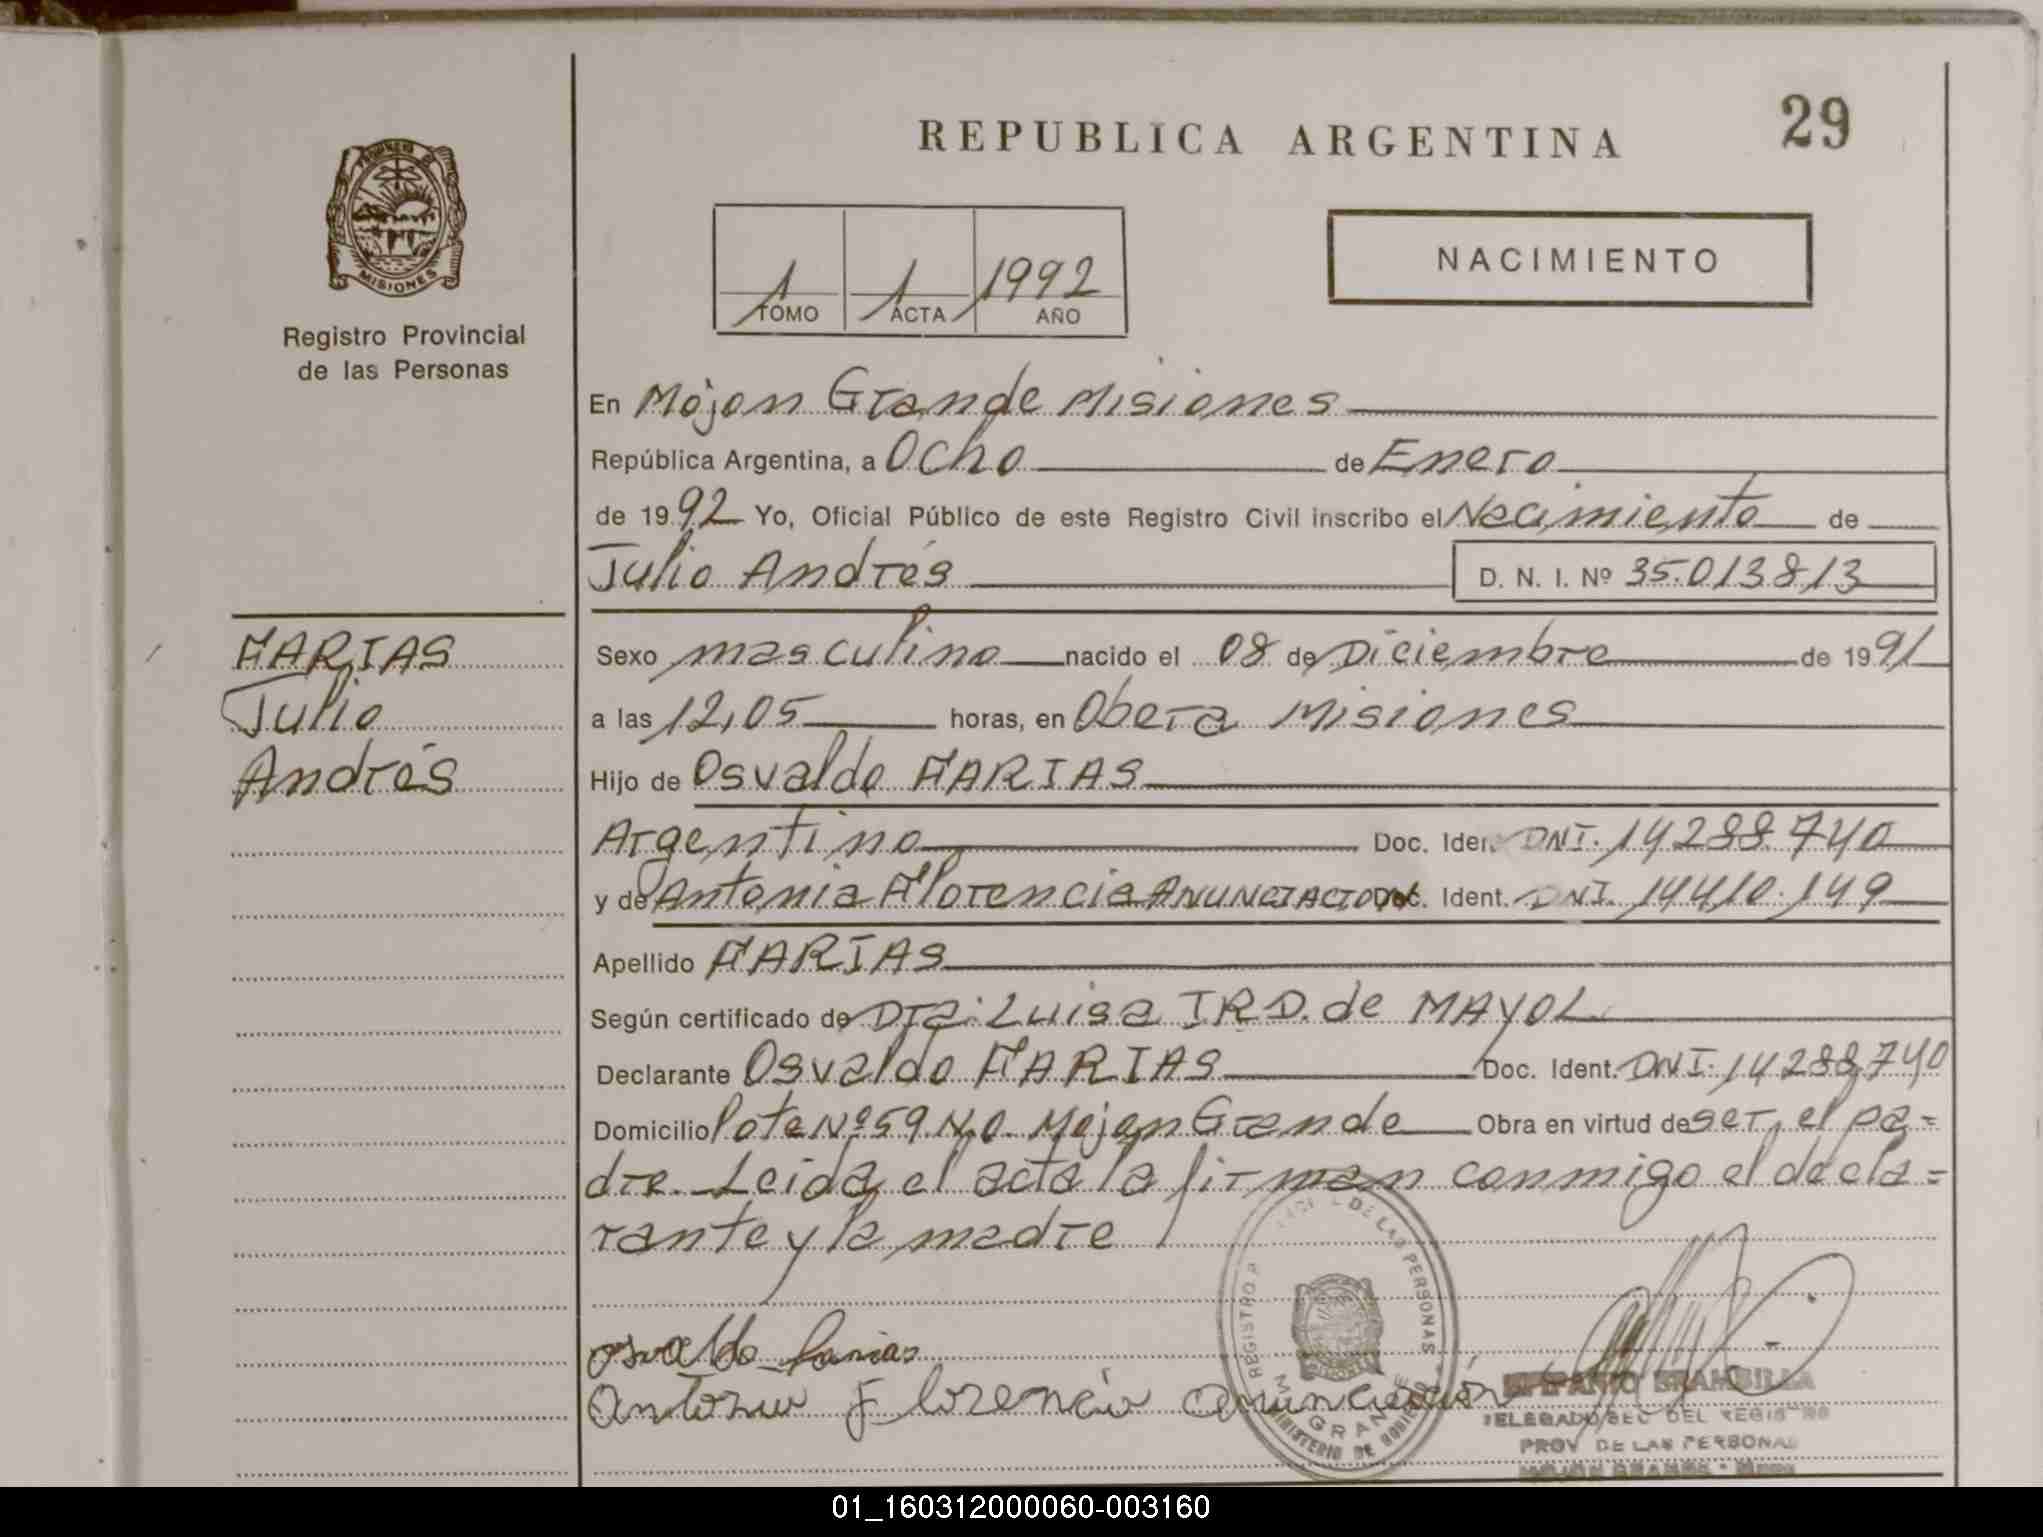 REPUBLICA ARGENTINA
29
MISIONES
Registro Provincial
de las Personas
1 TOMO
1 ACTA
1992 AÑO
NACIMIENTO
En Mojon Grande Misiones
República Argentina, a Ocho de Enero
de 1992 Yo, Oficial Público de este Registro Civil inscribo el Nacimiento de
Julio Andrés D. N. I. Nº 35.013813
FARIAS
Julio
Andrés
Sexo masculino nacido el 08 de Diciembre de 1991
a las 12,05 horas, en Obera Misiones
Hijo de Osvaldo FARIAS
Argentino Doc. Iden DNI. 14288.740
y de Antonia Florencia ANUNCIACION Doc. Ident. DNI. 14410.149
Apellido FARIAS
Según certificado de Dra: Luisa I R D. de MAYOL
Declarante Osvaldo FARIAS Doc. Ident. DNI. 14288740
Domicilio lote Nº 59 N.O. Mojon Grande Obra en virtud de ser el pa=
dre. Leida el acta la firman conmigo el decla=
rante y la madre
REGISTRO DE LAS PERSONAS
MINISTERIO DE GOBIERNO
osvaldo farias
Antonia Florencia Anunciación
EPIFANIO BRAMBILLA
DELEGADO SEC DEL REGISTRO
PROV DE LAS PERSONAS
MOJON GRANDE - Mnes
01_160312000060-003160